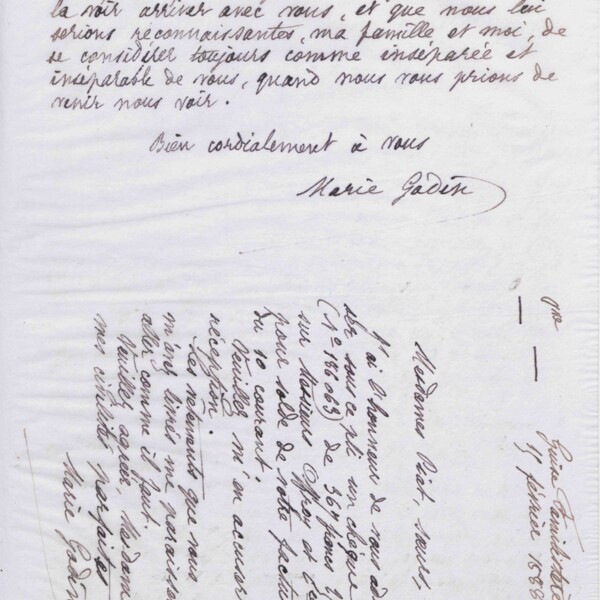 la voir arriver avec vous, et que nous lui
serions reconnaissantes, ma famille et moi, de
se considérer toujours comme inséparée et
inséparable de vous, quand nous vous prions de
venir nous voir.
Bien cordialement à vous
Marie Godin
Guise Familistère
15 février 1889
Mesdames sœurs,
J'ai l'honneur de vous
sous ce pli un chèque
de 361 francs
sur Messieurs et
pour solde de votre
du 10 courant.
Veuillez m'en accuser
réception.
Les vêtements que vous
m'avez livrés me paraissent
aller comme il faut.
Veuillez agréer,
mes civilités parfaites
Marie Godin